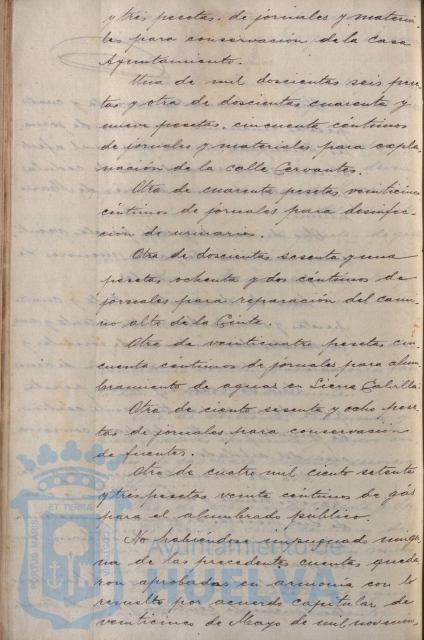 y tres pesetas, de jornales y materia-
les para conservación de la Casa
Ayuntamiento.
Una de mil doscientas seis pese-
tas y otra de doscientas cuarenta y
nueve pesetas, cincuenta céntimos
de jornales y materiales para expla-
nación de la calle Cervantes.
Otra de cuarenta pesetas veinticinco
céntimos de jornales para desinfec-
ción de urinarios.
Otra de doscientas sesenta y una
pesetas ochenta y dos céntimos de
jornales para reparación del cami-
no alto de la Cinta.
Otra de veinticuatro pesetas cin-
cuenta céntimos de jornales para alum-
bramiento de aguas en Sierra
Otra de ciento sesenta y ocho pese-
tas de jornales para conservación
de fuentes.
Otra de cuatro mil ciento setenta
y tres pesetas veinte céntimos de gas
para el alumbrado público.
No habiéndose impugnado ningu-
na de las precedentes cuentas queda-
ron aprobadas en armonía con lo
resuelto por acuerdo capitular de
veinticinco de Mayo de mil novecien
Ayuntamiento de
HUELVA